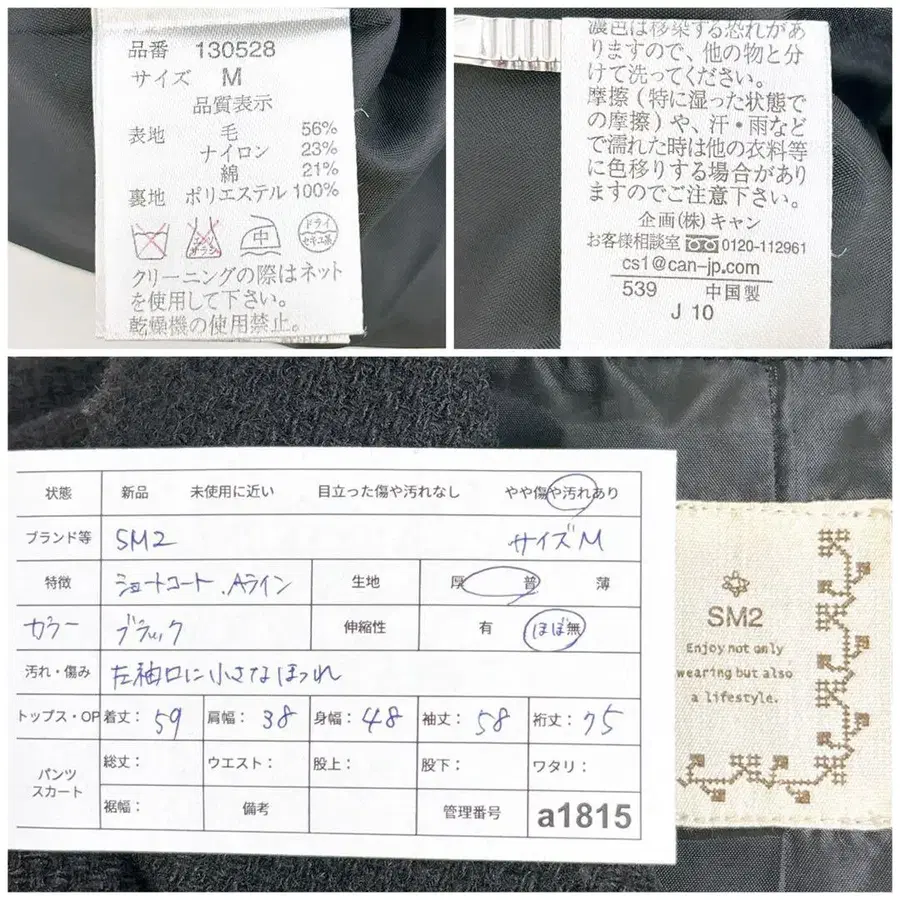 品番 130528
サイズ M
品質表示
表地 毛 56%
ナイロン 23%
綿 21%
裏地 ポリエステル 100%
エンソ サラシ
中
ドライ セキユ系
クリーニングの際はネット
を使用して下さい。
乾燥機の使用禁止。
濃色は移染する恐れがあ
りますので、他の物と分
けて洗ってください。
摩擦(特に湿った状態で
の摩擦)や、汗・雨など
で濡れた時は他の衣料等
に色移りする場合があり
ますのでご注意下さい。
企画(株)キャン
お客様相談室 0120-112961
cs1@can-jp.com
539 中国製
J 10
状態 新品 未使用に近い 目立った傷や汚れなし やや傷や汚れあり
ブランド等 SM2 サイズM
特徴 ショートコート.Aライン 生地 厚 普 薄
カラー ブラック 伸縮性 有 ほぼ無
汚れ・傷み 左袖口に小さなほつれ
トップス・OP 着丈: 59 肩幅: 38 身幅: 48 袖丈: 58 裄丈: 75
パンツ スカート 総丈: ウエスト: 股上: 股下: ワタリ:
裾幅: 備考 管理番号 a1815
SM2
Enjoy not only
wearing but also
a lifestyle.